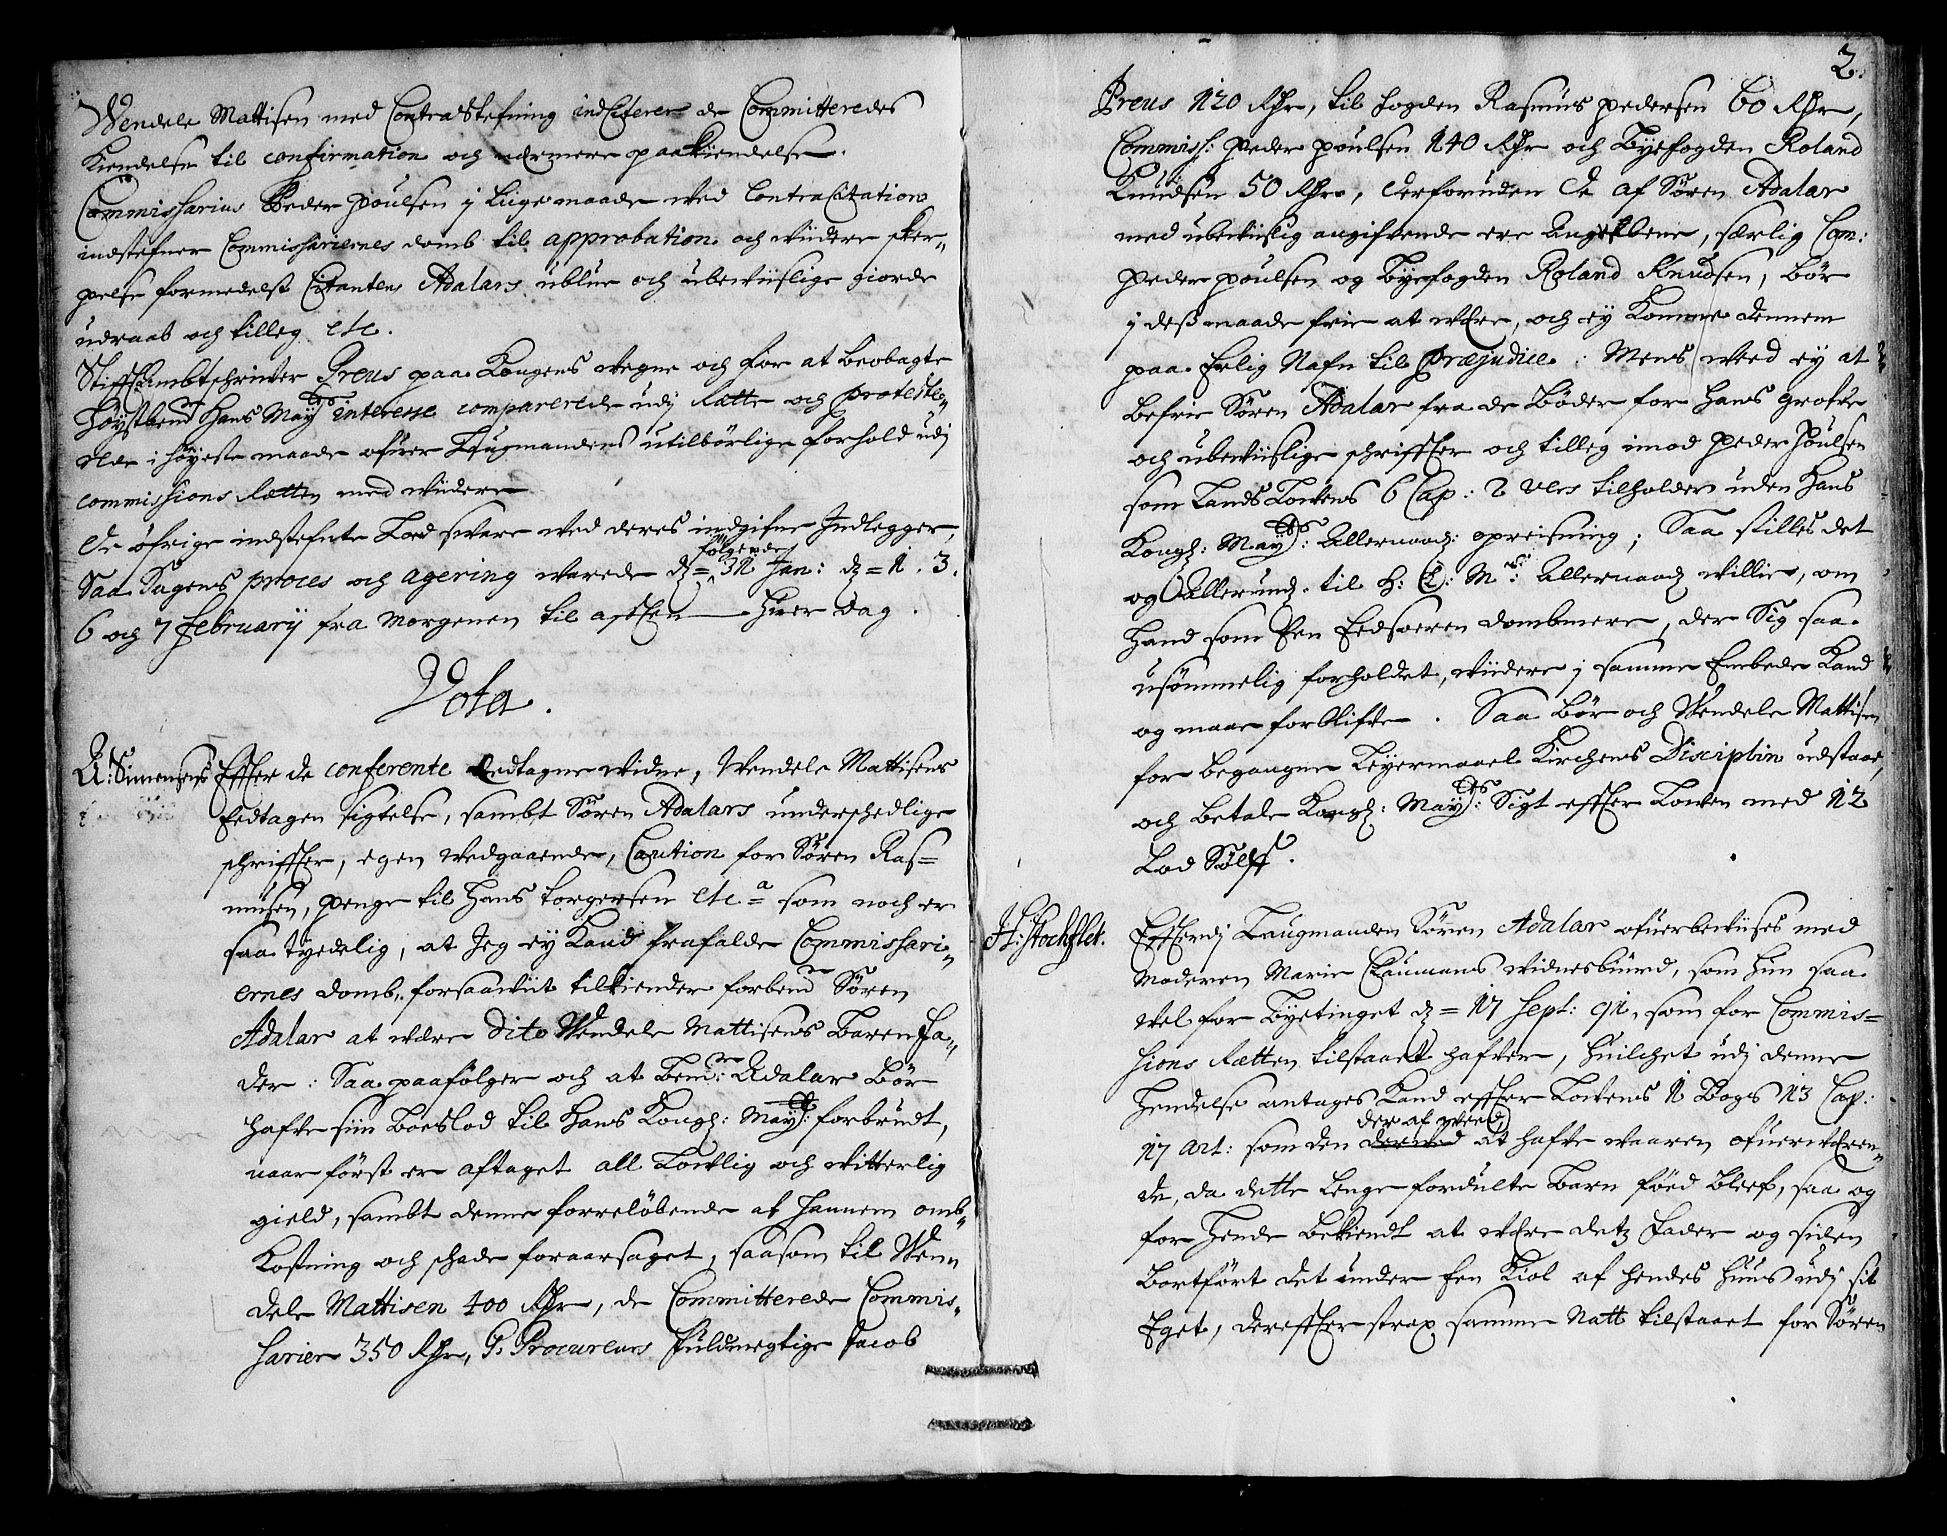 Wendele Mattisen med Contrastefning indCiterer de Committeredes
Kiendelse til confirmation och nermere paakiendelse.
Commissarius Peder Poulsen j liigemaade med ContraCitation
indstefner Commissariernes domb til approbation och widere sker„
pelse formedelst Citantens Adalars ublue och ubeviislige giorde
udraab och tilleg etc.
StifftAmbtschriver Preus paa Kongens wegne och for at beobagte
høystbemte Hans Mayts interesse comparerede udj Rætte och proteste„
rede i høyeste maade ofuer Laugmandens utilbørlige forhold udj
commissions Rætten med widere
De øfrige indstefnte Lod svare ved deres indgifne Indlegger,
Saa Sagens proces och agering warede dend 31 Jan: følgende dend 1. 3.
6 och 7 february fra Morgenen til afften hver dag.
Vota.
A: Simensens Effter de conferente Eedtagne widne, Wendele Mattisens
Eedtagen sigtelse, sambt Søren Adalars underschedlige
schriffter, egen vedgaaende, Caution for Søren Ras=
musen, penge til Hans torgersen etca som noch er
saa tydelig, at Jeg ey Kand frafalde Commissari„
ernes domb, forsaawiit tilkiender forbemte Søren
Adalar at være dito Wendele Mattisens Baren fa„
der: Saa paafølger och at bemte: Adalar bør
hafve siin Boeslod til Hans Kongl: Mayts: forbrudt,
naar først er aftaget all Lowlig och witterlig
gield, sambt denne forreløbende af hannem omb„
kostning och schade foraarsaget, saasom til Wen„
dele Mattisen 400 Rdr, de Committerede Commis„
sarier 350 Rdr, G. Procureurs fuldmegtige Jacob
2.
Preus 120 Rdr, til fogden Rasmus Pedersen 60 Rdr,
Commiss: Peder Poulsen 140 Rdr och Byefogden Roland
Knudsen 50 Rdr, derforuden de af Søren Adalar
med ubeviislig angifvende ere Angrebene, særlig Com:
Peder Poulsen og Byefogden Roland Knudsen, bør
j dess maade frie at være, och ey komme dennem
paa Erlig Nafn til præjudice: Mens weed ey at
befrie Søren Adalar fra de Bøder for hans grofve
och ubeviislige schriffter och tilleg imod Peder Poulsen
som Lands Lowens 6 Cap: 2 vers tilholder uden Hans
Kongl: Mayts: Allernaad: opreisning; Saa stilles det
og Allerund. til H: K: Mts: Allernaad willie, om
hand som Een Eedsoeren dombmere, der Sig saa
usømmelig forholdet, widere j samme Embede Kand
og maae forblifve. Saa bør och Wendele Mattisen
for begangne Leyermaael Kirchens Disciplin udstaae,
och betale Kongl: Mayts: Sigt effter Lowen med 12
Lod Sølff.
H: Stockflet. Efterdj Laugmanden Søren Adalar ofuerbeviises med
Moderen Marie Clausens widnesbiurd, som hun saa
vel for Byetinget d = 17 Sept: 91, som for Commis=
sions Rætten tilstaaet hafver, huilchet udj denne
hendelse antages Kand effter Lovens 1 Bogs 13 Cap:
17 art: som den der af werd at hafve waaren ofuerværen„
de, da dette lenge fordulte Barn føed bleef, saa og
for hende bekiendt at være detz fader og siden
bortført det under Een Kiol af hendes Huus udj sit
Eget, dereffter strax samme Natt tilstaaet for Søren